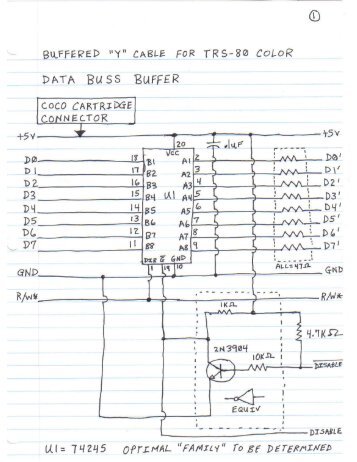 ①
BUFFERED "Y" CABLE FOR TRS-80 COLOR
DATA BUSS BUFFER
COCO CARTRIDGE
CONNECTOR
+5V +5V
20
VCC
.1µF
D0 18 B1 A1 2 D0'
D1 17 B2 A2 3 D1'
D2 16 B3 A3 4 D2'
D3 15 B4 U1 A4 5 D3'
D4 14 B5 A5 6 D4'
D5 13 B6 A6 7 D5'
D6 12 B7 A7 8 D6'
D7 11 B8 A8 9 D7'
DIR G GND
1 19 10
ALL=47Ω
GND GND
R/W* R/W*
1KΩ
4.7KΩ
2N3904
10KΩ
DISABLE
EQUIV
DISABLE
U1= 74245 OPTIMAL "FAMILY" TO BE DETERMINED